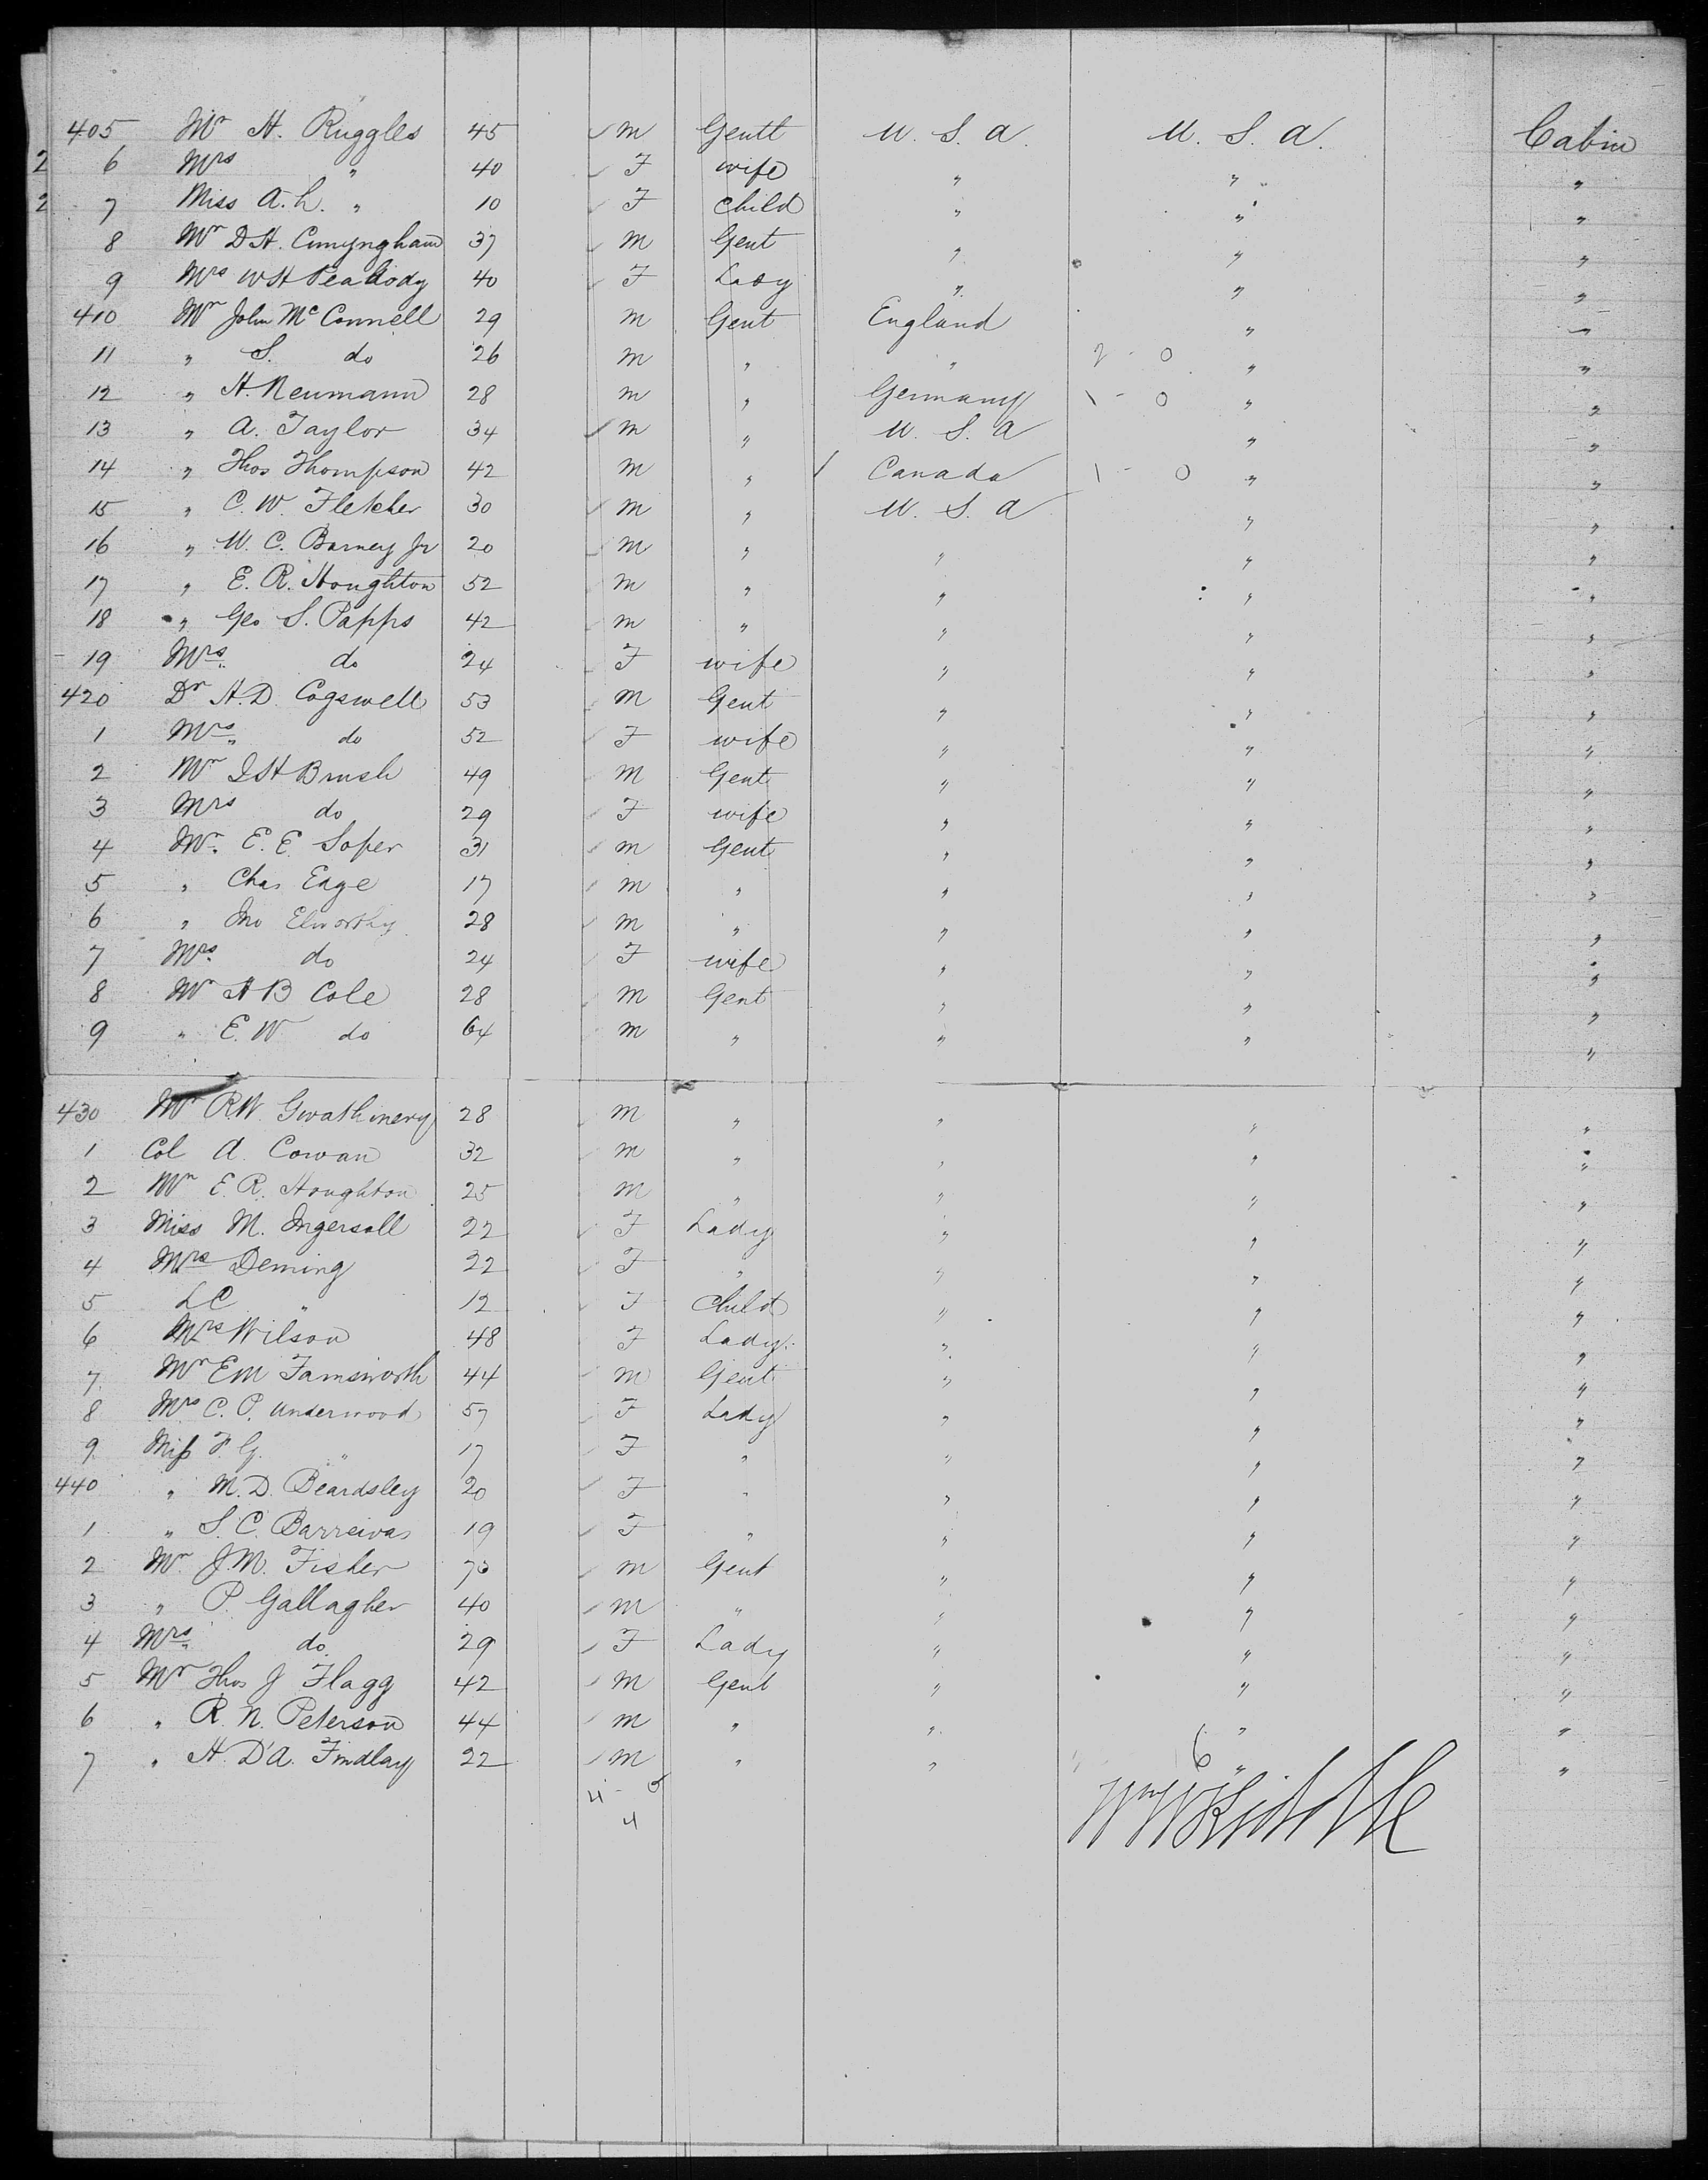 405 Mr H. Ruggles 45 m Gentl U. S. A. U. S. A. Cabin
2 6 Mrs " 40 F wife " " "
2 7 Miss A. L. " 10 F Child " " "
8 Mr D H. Cunyngham 37 m Gent " " "
9 Mrs W H Peabody 40 F Lady " " "
410 Mr John McConnell 29 m Gent England " "
11 " S. do 26 m " " 2 - 0 " "
12 " H. Neumann 28 m " Germany 1 - 0 " "
13 " A. Taylor 34 m " U. S. A " "
14 " Thos Thompson 42 m " Canada 1 - 0 " "
15 " C. W. Fletcher 30 m " U. S. A " "
16 " W. C. Barney Jr 20 m " " " "
17 " E. R. Houghton 52 m " " " "
18 " Geo S. Papps 42 m " " " "
19 Mrs " do 24 F wife " " "
420 Dr H. D. Cogswell 53 m Gent " " "
1 Mrs " do 52 F wife " " "
2 Mr I H Brush 49 m Gent " " "
3 Mrs do 29 F wife " " "
4 Mr. E. E. Soper 31 m Gent " " "
5 " Chas Edge 17 m " " " "
6 " Jno Elworthy 28 m " " " "
7 Mrs. do 24 F wife " " "
8 Mr H B Cole 28 m Gent " " "
9 " E. W do 64 m " " " "
430 Mr R W. Gwathmery 28 m " " " "
1 Col A. Cowan 32 m " " " "
2 Mr E. R. Houghton 25 m " " " "
3 Miss M. Ingersoll 22 F Lady " " "
4 Mrs Deming 22 F " " " "
5 L C " 12 F Child " " "
6 Mrs Wilson 48 F Lady " " "
7 Mr E M Farnsworth 44 m Gent " " "
8 Mrs C. P. Underwood 57 F Lady " " "
9 Miss F. G. " 17 F " " " "
440 " M. D. Beardsley 20 F " " " "
1 " S. C. 19 F " " " "
2 Mr J. M. Fisher m Gent " " "
3 " P. Gallagher 40 m " " " "
4 Mrs " do 29 F Lady " " "
5 Mr Thos J Flagg 42 m Gent " " "
6 " R. N. Peterson 44 m " " " "
7 " H. D'A. Findlay 22 m " " 6 " "
4